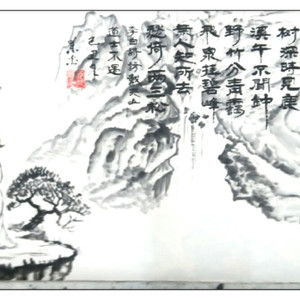 树深时見鹿
溪午不闻鈡
野竹分青靄
飛泉挂碧峰
無人知所去
愁倚两三松
李白诗訪戴天山
道士不遇